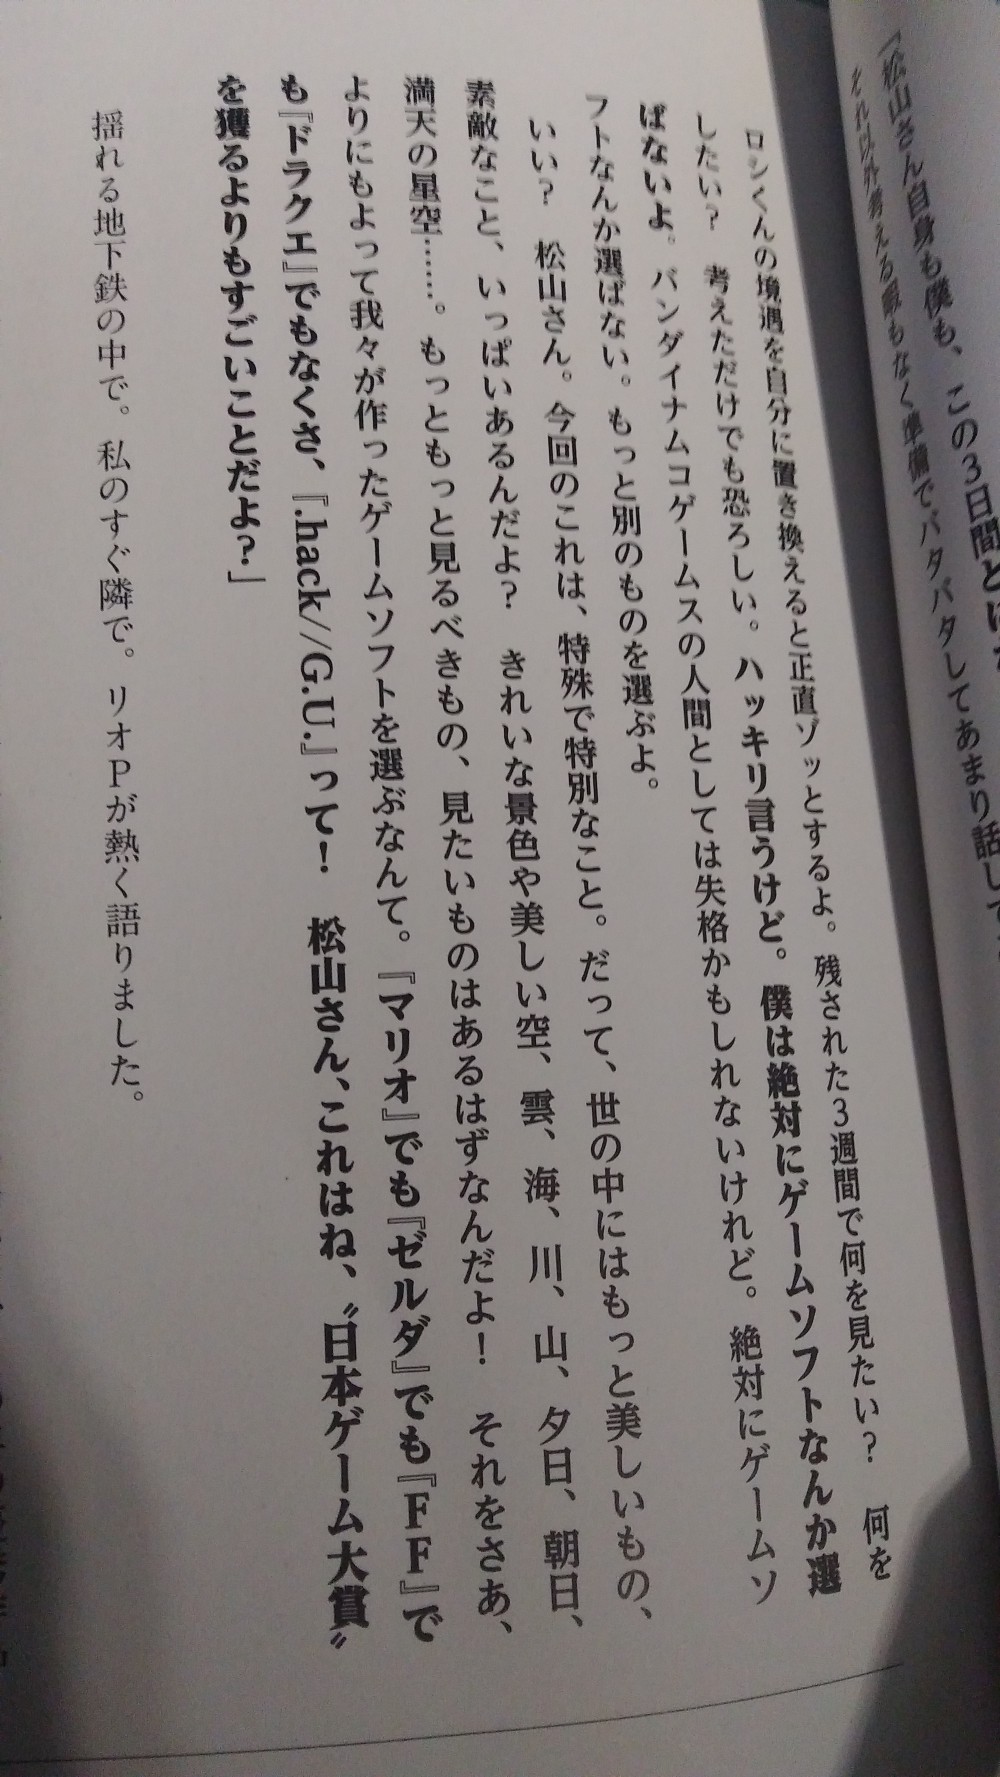 「松山さん自身も僕も、この3日間とに
それ以外考える暇もなく準備でバタバタしてあまり話して
ロンくんの境遇を自分に置き換えると正直ゾッとするよ。残された3週間で何を見たい？　何を
したい？　考えただけでも恐ろしい。ハッキリ言うけど。僕は絶対にゲームソフトなんか選
ばないよ。バンダイナムコゲームスの人間としては失格かもしれないけれど。絶対にゲームソ
フトなんか選ばない。もっと別のものを選ぶよ。
いい？　松山さん。今回のこれは、特殊で特別なこと。だって、世の中にはもっと美しいもの、
素敵なこと、いっぱいあるんだよ？　きれいな景色や美しい空、雲、海、川、山、夕日、朝日、
満天の星空……。もっともっと見るべきもの、見たいものはあるはずなんだよ！　それをさあ、
よりにもよって我々が作ったゲームソフトを選ぶなんて。『マリオ』でも『ゼルダ』でも『FF』で
も『ドラクエ』でもなくさ、『.hack//G.U.』って！　松山さん、これはね、〝日本ゲーム大賞〟
を獲るよりもすごいことだよ？」
揺れる地下鉄の中で。私のすぐ隣で。リオPが熱く語りました。